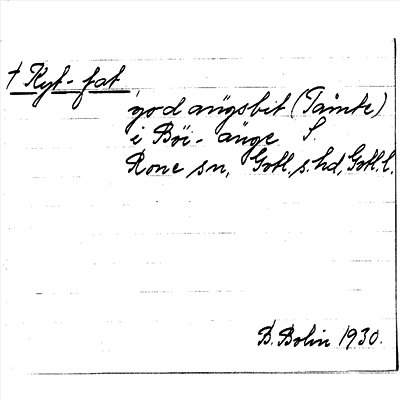 † Ryt-fat,
god ängsbit (Tåmte)
i Böi-änge S.
Rone sn, Gotl. s. hd, Gotl. l.
B. Bolin 1930.